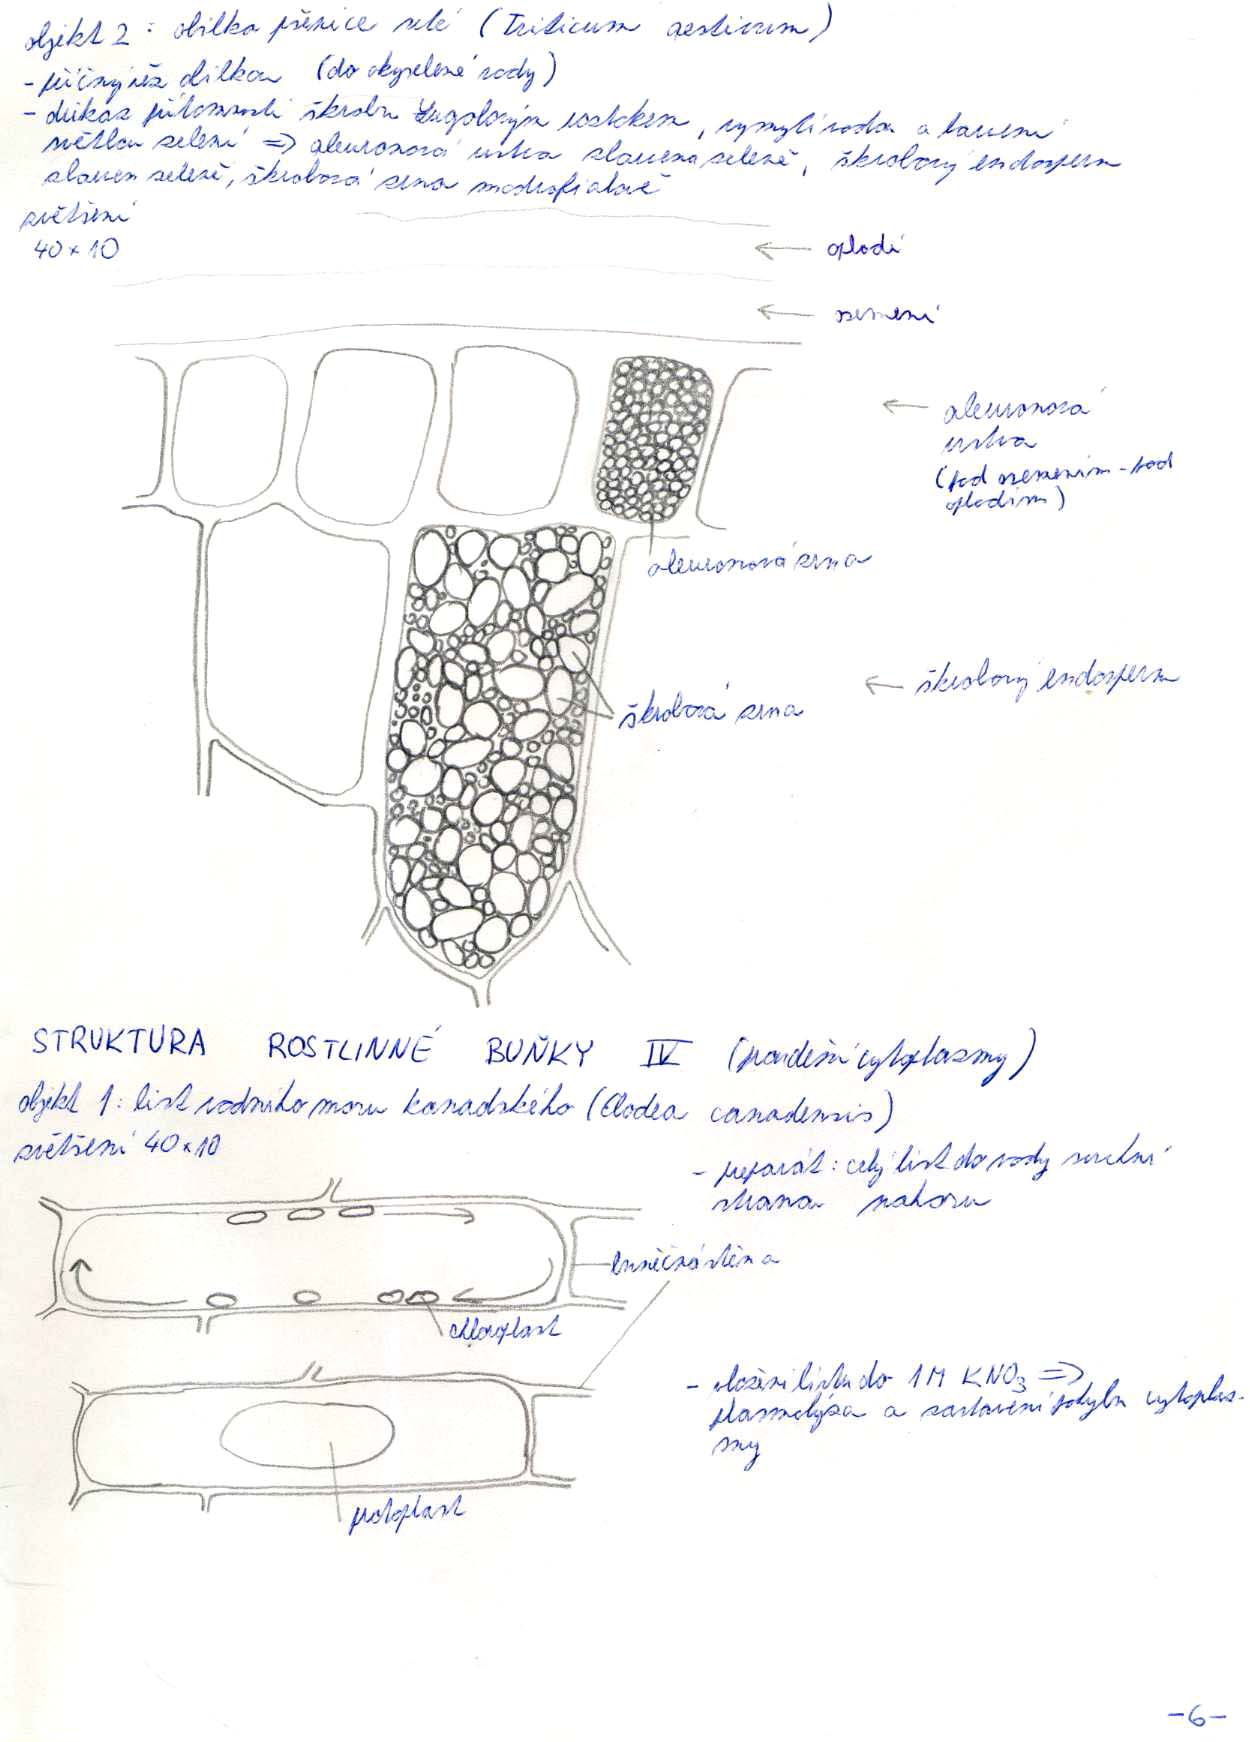 objekt 2: obilka pšenice seté (Triticum aestivum)
- příčný řez obilkou (do okyselené vody)
- důkaz přítomnosti škrobu Lugolovým roztokem, vymytí vodou a barvení
světlou zelení => aleuronová vrstva zbarvena zeleně, škrobový endosperm
zbarven zeleně, škrobová zrna modrofialově
zvětšení
40×10
oplodí
osemení
aleuronová
vrstva
(pod osemením - pod
oplodím)
aleuronová zrna
škrobový endosperm
škrobová zrna
STRUKTURA ROSTLINNÉ BUŇKY IV (proudění cytoplazmy)
objekt 1: list vodního moru kanadského (Elodea canadensis)
zvětšení 40×10
- preparát: celý list do vody svrchní
stranou nahoru
buněčná stěna
chloroplast
- vložení listu do 1M KNO₃ =>
plasmolýza a zastavení pohybu cytoplaz-
my
protoplast
-6-